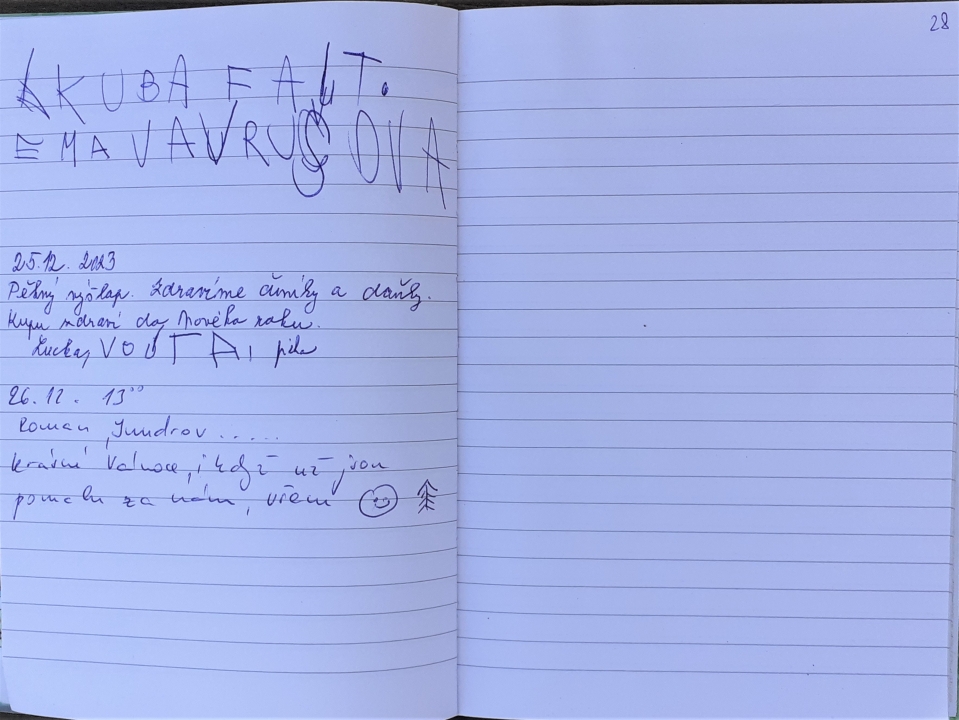 KUBA FALT.
EMA VAVRUŠOVA
25.12. 2023
Pěkný výšlap. Zdravíme a
zdraví do Nového roku.
VOJTA,
26.12. 13⁰⁰
Roman, Jundrov .....
krásné Vánoce, i když už jsou
pomalu za námi, všem
28